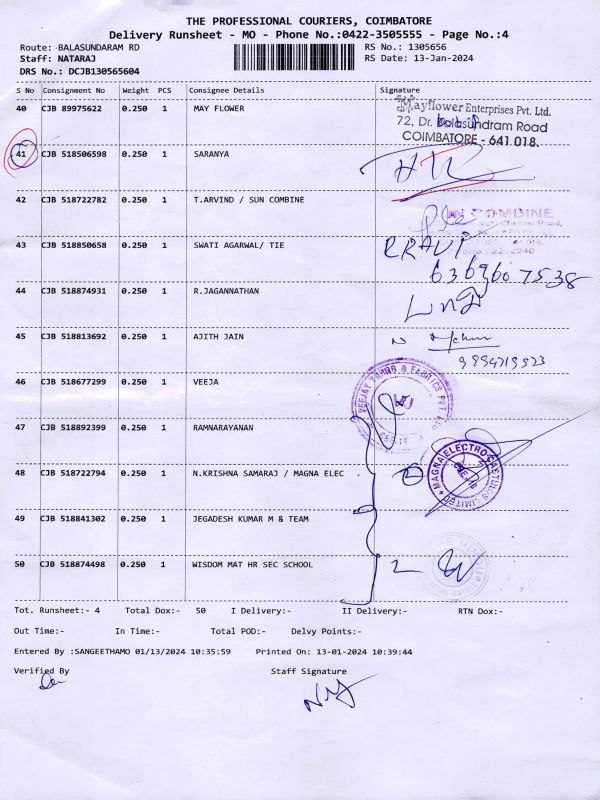 THE PROFESSIONAL COURIERS, COIMBATORE
Delivery Runsheet - MO - Phone No.:0422-3505555 - Page No.:4
Route: BALASUNDARAM RD RS No.: 1305656
Staff: NATARAJ RS Date: 13-Jan-2024
DRS No.: DCJB130565604
S No Consignment No Weight PCS Consignee Details Signature
40 CJB 89975622 0.250 1 MAY FLOWER
Mayflower Enterprises Pvt. Ltd.
72, Dr. Balasundram Road
COIMBATORE - 641 018.
41 CJB 518506598 0.250 1 SARANYA
42 CJB 518722782 0.250 1 T.ARVIND / SUN COMBINE
COMBINE
43 CJB 518850658 0.250 1 SWATI AGARWAL/ TIE
44 CJB 518874931 0.250 1 R.JAGANNATHAN
45 CJB 518813692 0.250 1 AJITH JAIN
46 CJB 518677299 0.250 1 VEEJA
47 CJB 518892399 0.250 1 RAMNARAYANAN
48 CJB 518722794 0.250 1 N.KRISHNA SAMARAJ / MAGNA ELEC
MAGNA ELECTRO CASTINGS LIMITED
49 CJB 518841302 0.250 1 JEGADESH KUMAR M & TEAM
50 CJB 518874498 0.250 1 WISDOM MAT HR SEC SCHOOL
Tot. Runsheet:- 4 Total Dox:- 50 I Delivery:- II Delivery:- RTN Dox:-
Out Time:- In Time:- Total POD:- Delvy Points:-
Entered By :SANGEETHAMO 01/13/2024 10:35:59 Printed On: 13-01-2024 10:39:44
Verified By Staff Signature